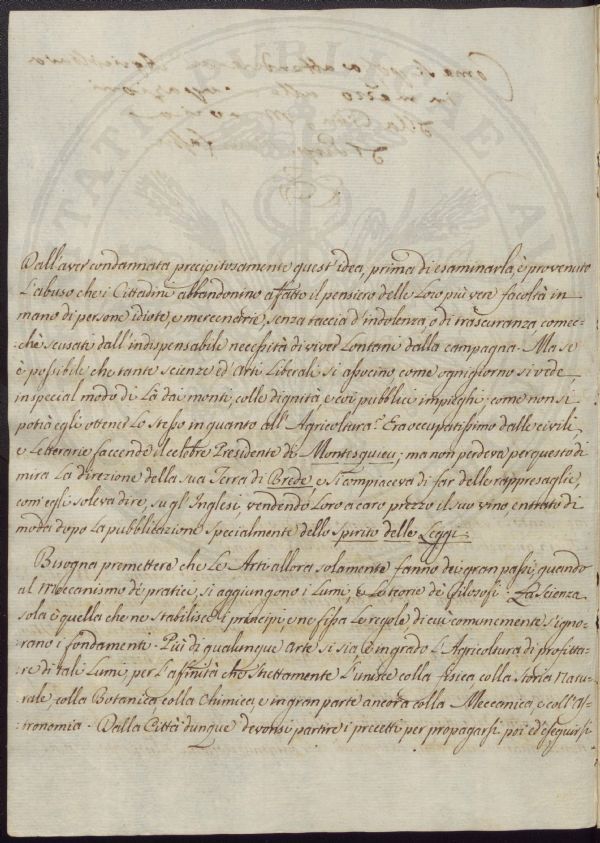 Dall'aver condannata precipitosamente quest'idea, prima di esaminarla, è provenuto
l'abuso che i Cittadini abbandonino affatto il pensiero delle Loro più vere facoltà in
mano di persone idiote, e mercenarie, senza taccia d'indolenza, o di trascuranza comec=
=chè scusati dall'indispensabile necessità di viver Lontani dalla campagna. Ma se
è possibile che tante scienze ed Arti Liberali si associno come ogni giorno si vede
in special modo di Là dai monti, colle dignità e coi pubblici impieghi; come non si
potià egli ottener Lo stesso in quanto all'Agricoltura? Era occupatissimo dalle civili,
e Letterarie faccende il celebre Presidente di Montesquieu; ma non perdeva per questo di
mira La direzione della sua Terra di Brede, e si compiaceva di far delle rappresaglie,
com'egli soleva dire, su gl'Inglesi, vendendo Loro a caro prezzo il suo vino, entrato di
moda dopo La pubblicazione specialmente dello Spirito delle Leggi.
Bisogna premettere che Le Arti allora solamente fanno dei gran passi, quando
al Meccanismo de' pratici, si aggiungono i Lumi, e Le teorie de' Filosofi. La scienza
sola è quella che ne stabilisce i principi e ne fissa Le regole di cui comunemente s'igno=
rano i fondamenti. Più di qualunque arte si sia, è in grado L'Agricoltura di profitta=
=re di tali Lumi, per L'affinità che strettamente L'unisce colla fisica colla Storia Natu=
rale, colla Botanica colla Chimica, e in gran parte ancora colla Meccanica, e coll'As=
tronomia. Dalla Città dunque devonsi partire i precetti per propagarsi poi ed eseguirsi